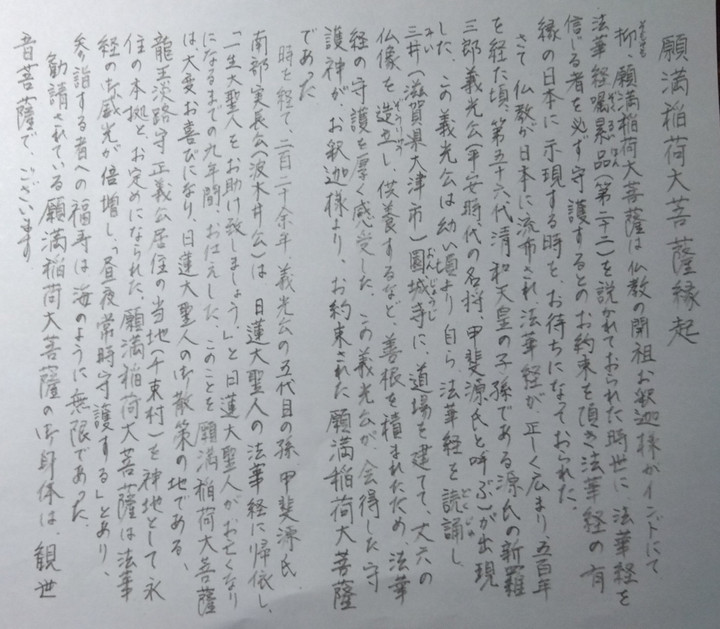 願満稲荷大菩薩縁起
抑、願満稲荷大菩薩は仏教の開祖お釈迦様がインドにて
法華経嘱累品(第二十二)を説かれておられた時世に法華経を
信じる者を必ず守護するとのお約束を頂き法華経の有
縁の日本に示現する時を、お待ちになっておられた
さて仏教が日本に流布され、法華経が、正しく広まり、五百年
を経た頃、第五十六代清和天皇の子孫である源氏の新羅
三郎義光公(平安時代の名将、甲斐源氏と呼ぶ)が出現
した、この義光公は幼い頃より自ら法華経を読誦し
三井(滋賀県大津市)園城寺に、道場を建てて、丈六の
仏像を造立し、供養するなど、善根を積まれたため、法華
経の守護を厚く感受した、この義光公が、会得した守
護神が、お釈迦様より、お約束された願満稲荷大菩薩
であった
時を経て、二百二十余年、義光公の五代目の孫、甲斐源氏
南部実長公(波木井公)は、日蓮大聖人の法華経に帰依し、
「一生大聖人をお助け致しましょう。」と日蓮大聖人がお亡くなり
になるまでの九年間、お仕えした、このことを願満稲荷大菩薩
は、大変お喜びになり、日蓮大聖人の御散策の地である、
龍王淡路守正義公居住の当地(千束村)を神地として永
住の本拠と、お定めになられた、願満稲荷大菩薩は法華
経の御威光が倍増し、「昼夜常時守護する」とあり、
参詣する者への福寿は海のように無限であった、
勧請されている願満稲荷大菩薩の御身体は、観世
音菩薩で、ございます